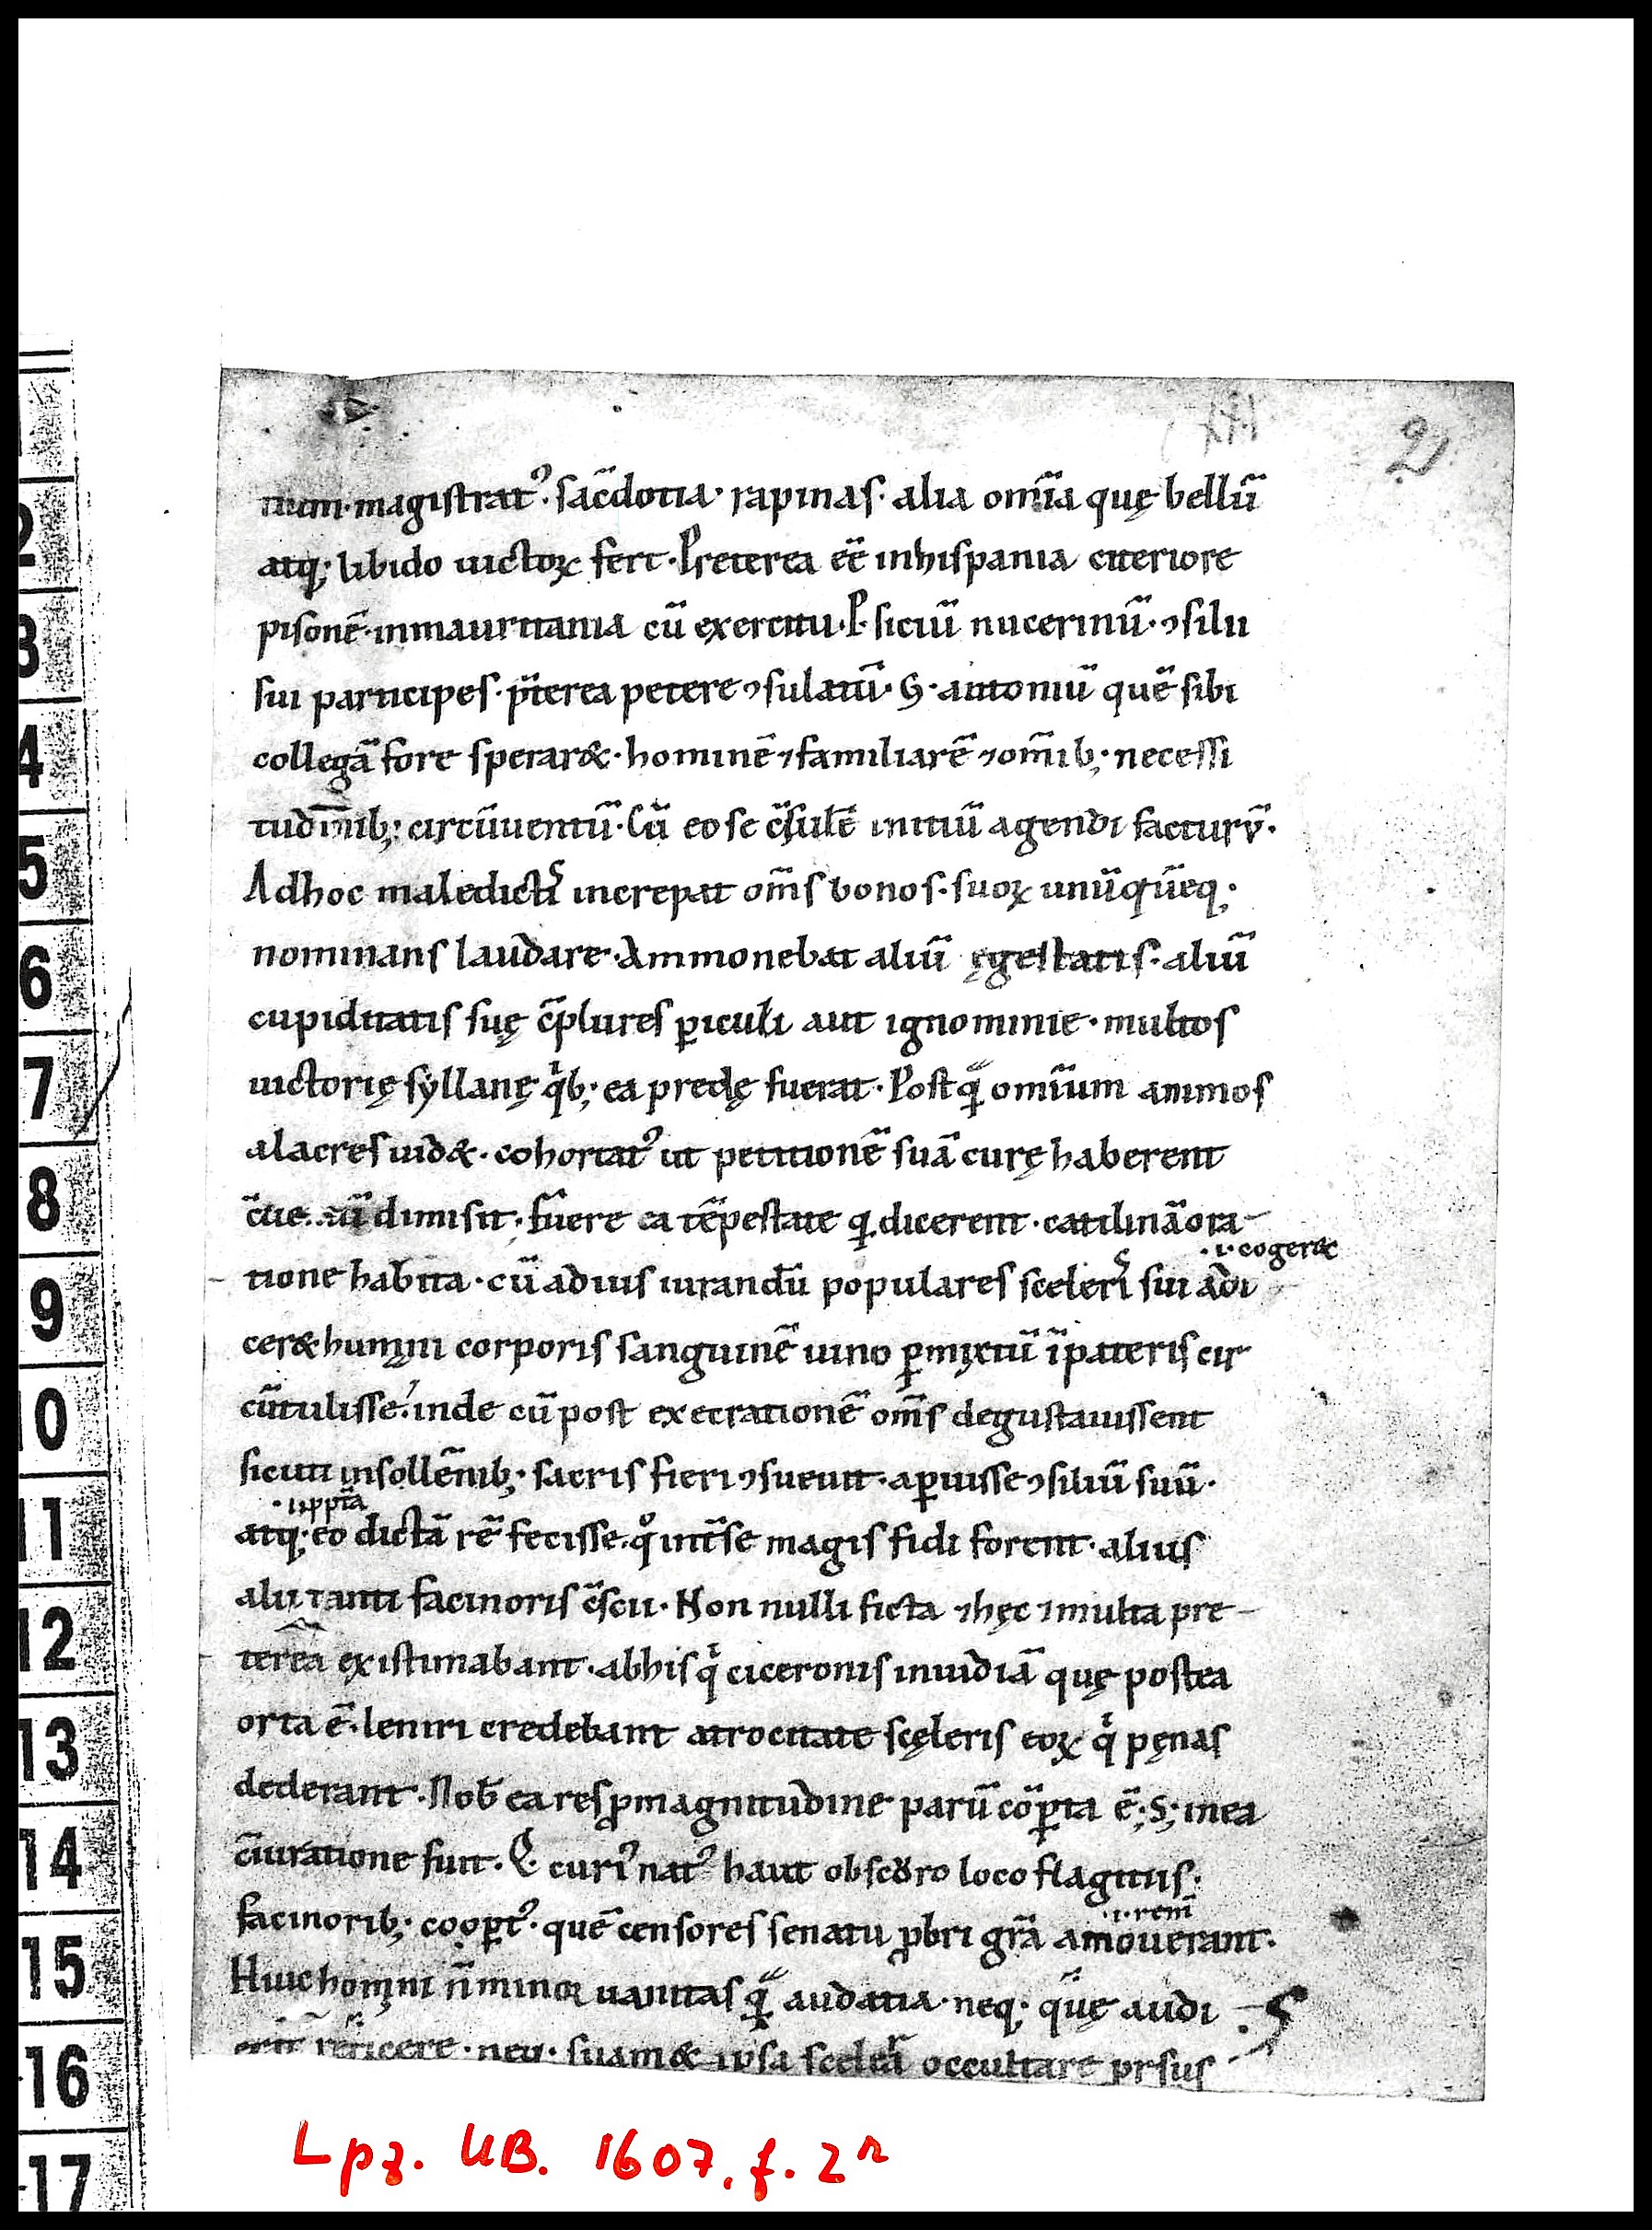 2
num· magistratꝰ· sac̄dotia· rapinas· alia om̄ia quę bellū
atq; libido uictoꝝ fert· Preterea eē inhispania citeriore
pisonē· inmauritania cū exercitu· P· siciū nucerinū· ꝯsilii
sui participes· p̄terea petere ꝯsulatū· G· antoniū quē sibi
collegā fore sperar&· hominē ⁊familiarē ⁊om̄ib; necessi
tudīnib; circūuentū· Cū eo se c̄sulē initiū agendi facturū·
Adhoc maledictis increpat om̄s bonos· suoꝝ unūquēq;
nominans laudare· Ammonebat aliū ęgestatis· aliū
cupiditatis suę c̄plures ꝑiculi aut ignominie· multos
uictorię syllanę qͥb; ea predę fuerat· Postqͣ̄ om̄ium animos
alacres uid&· cohortatꝰ ut petitionē suā curę haberent
dimisit· fuere ea tēpestate q dicerent· catilinā ora-
·ł· coger&
tione habita· cū adius iurandū populares sceleris sui adi
cer& humani corporis sanguinē uino ꝑmixtū īpateris cir
cūtulisse· inde cū post execrationē om̄s degustauissent
sicuti insollēnib; sacris fieri ꝯsueuit· aꝑuisse ꝯsiliū suū·
atq; eo dictā rē fecisse· qͦ int̄ se magis fidi forent· alius
alii tanti facinoris c̄scii· Non nulli ficta ⁊hęc ⁊multa pre-
tereā existimabant· abhis qͥ ciceronis inuidiā quę postea
orta ē· leniri credebant atrocitate scęleris eoꝝ qͥ pęnas
dederant· Nob̄ ea res ꝓmagnitudine parū cōꝑta ē; S; inea
c̄iuratione fuit· Q· curiꝰ natꝰ haut obscuro loco flagitiis·
·ł· rem̄
facinorib; cooꝑtꝰ· quē censores senatu ꝓbri gr̄a amouerant·
Huic homini n̄ minor uanitas qͣ̄ audatia· neq; quę audi
reticere· neq· suam& ipsa scelera occultare prsus
Lpz. UB. 1607, f. 2r
2
3
4
5
6
7
8
9
10
11
12
13
14
15
16
17